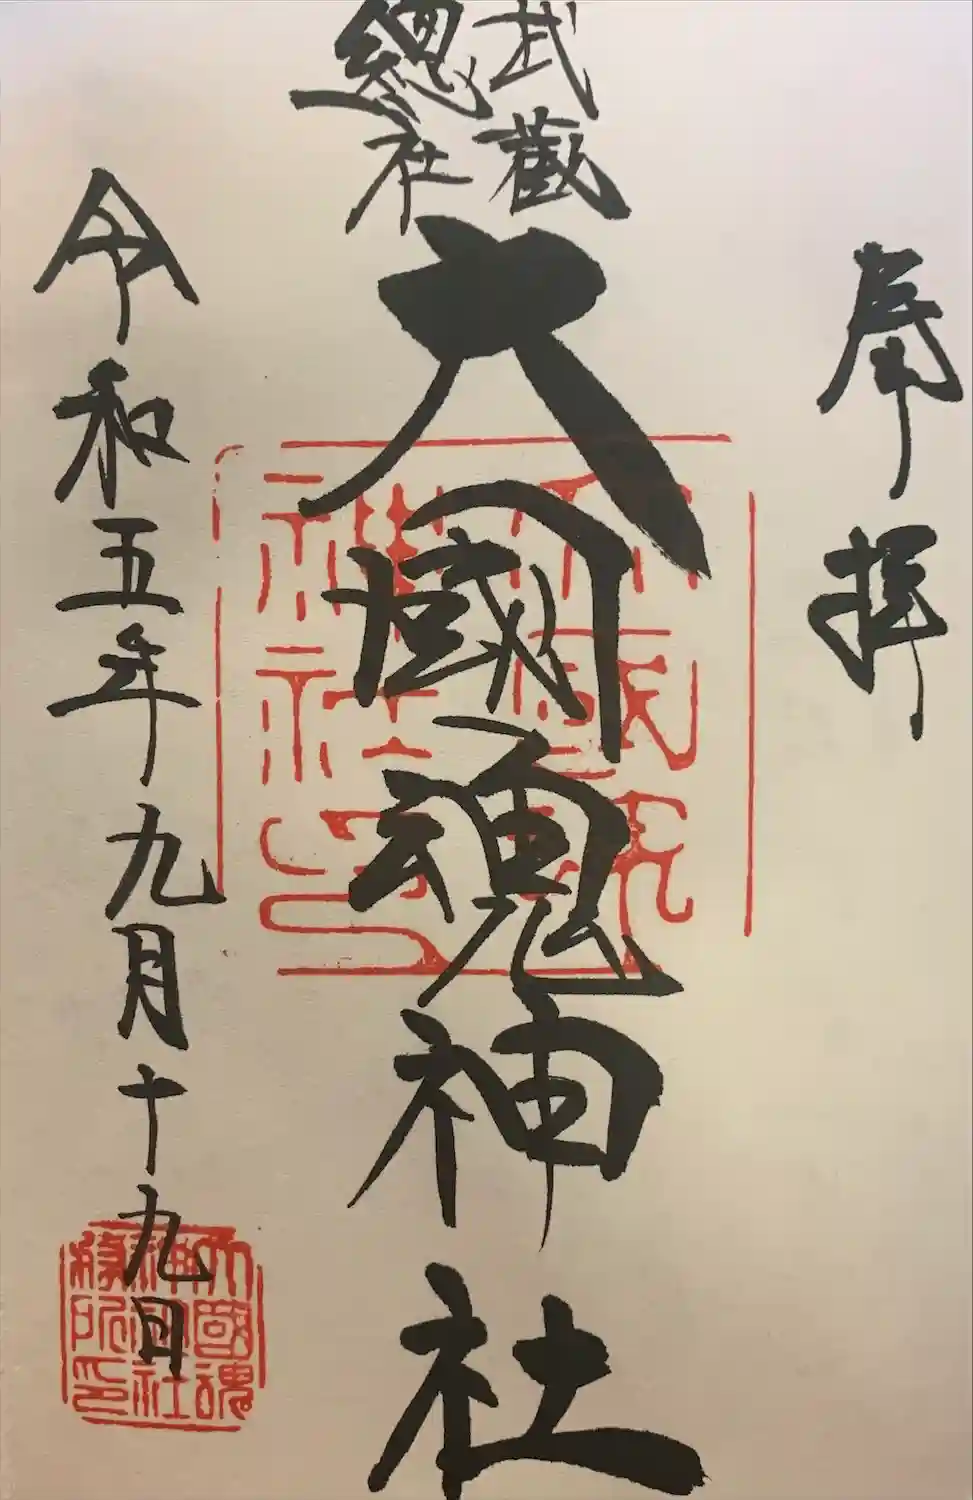 奉拝
武蔵
總社
大國魂神社
令和五年九月十九日
大國魂
神社
大國魂
神社
務所印